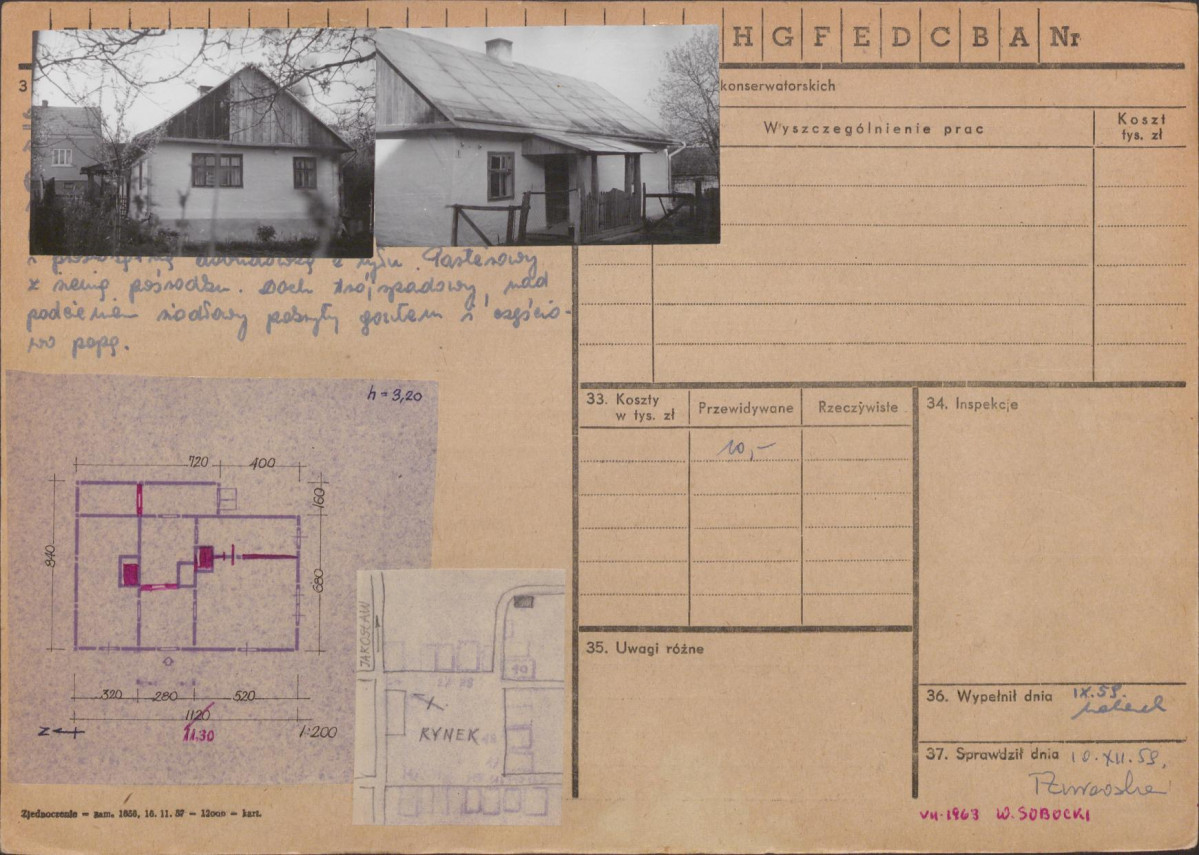 H G F E D C B A Nr
3
konserwatorskich
Wyszczególnienie prac
Koszt
tys. zł
z sienią pośrodku. Dach trójspadowy, nad
podcieniem siodłowy pokryty gontem i częścio-
wo papą.
h = 3,20
720 400
160
840
680
320 280 520
1120
11.30
N
1:200
JAROSŁAW
40
RYNEK
33. Koszty
w tys. zł
Przewidywane
Rzeczywiste
10,-
34. Inspekcje
35. Uwagi różne
36. Wypełnił dnia IX.59.
37. Sprawdził dnia 10.XII.59.
VII-1963 W. SOBOCKI
Zjednoczenie — zam. 1858, 16. 11. 57 — 12000 — kart.